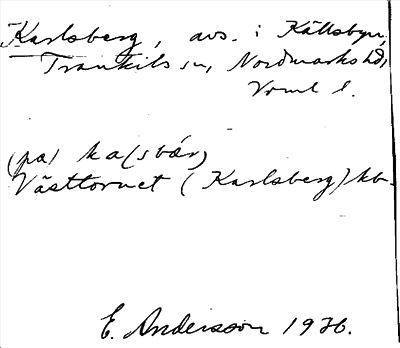 Karlsberg, avs. i Källsbyn,
Trankils sn, Nordmarks hd,
Vrml l.
(pa) ka(sbær)
Västtornet (Karlsberg) kb.
E. Andersson 1936.